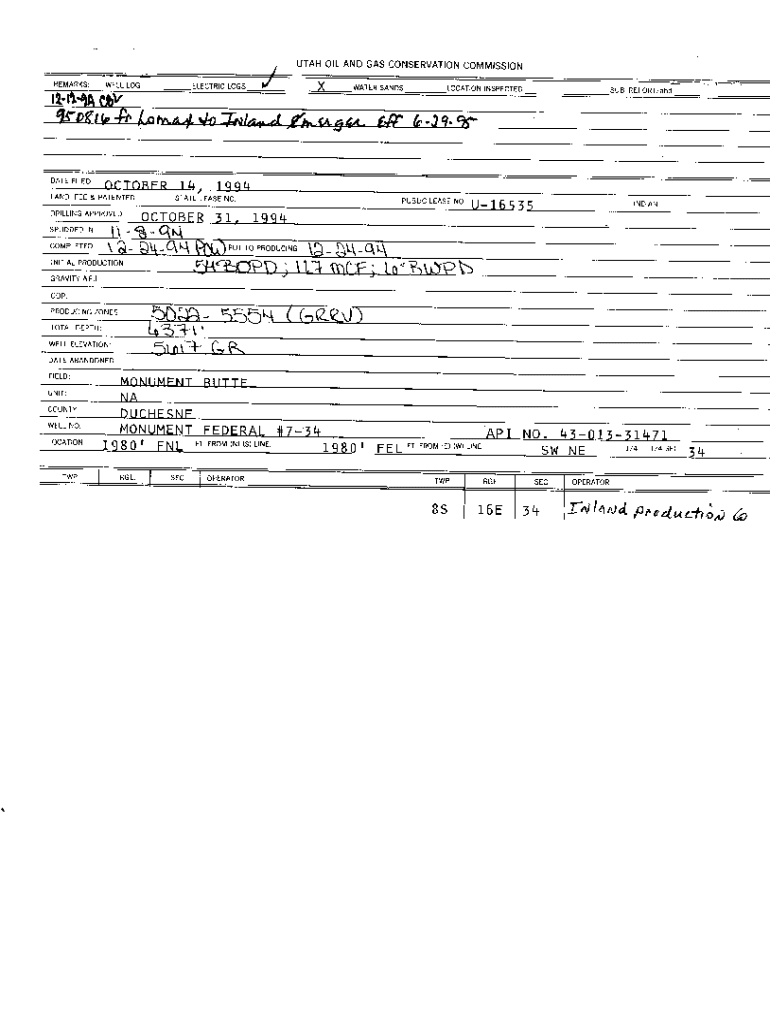 UTAH OIL AND GAS CONSERVATION COMMISSION
REMARKS: WELL LOG ELECTRIC LOGS ✓ X WATER SANDS LOCATION INSPECTED SUB REPORT/abd
950816 fr Lomax to Inland merger Eff 6-29-95
DATE FILED OCTOBER 14, 1994
LAND: FEE & PATENTED STATE LEASE NO. PUBLIC LEASE NO. U-16535 INDIAN
DRILLING APPROVED: OCTOBER 31, 1994
SPUDDED IN: 11-8-94
COMPLETED: 12-24-94 POW PUT TO PRODUCING: 12-24-94
INITIAL PRODUCTION: 54 BOPD; 117 MCF; 6 BWPD
GRAVITY A.P.I.
GOR:
PRODUCING ZONES: 5022-5554 (GRRV)
TOTAL DEPTH: 6371'
WELL ELEVATION: 5617 GR
DATE ABANDONED:
FIELD: MONUMENT BUTTE
UNIT: NA
COUNTY: DUCHESNE
WELL NO. MONUMENT FEDERAL #7-34 API NO. 43-013-31471
LOCATION 1980' FNL FT. FROM (N) (S) LINE, 1980' FEL FT. FROM (E) (W) LINE. SW NE 1/4 - 1/4 SEC. 34
TWP. RGE. SEC. OPERATOR TWP. RGE. SEC. OPERATOR
8S 16E 34 Inland Production Co